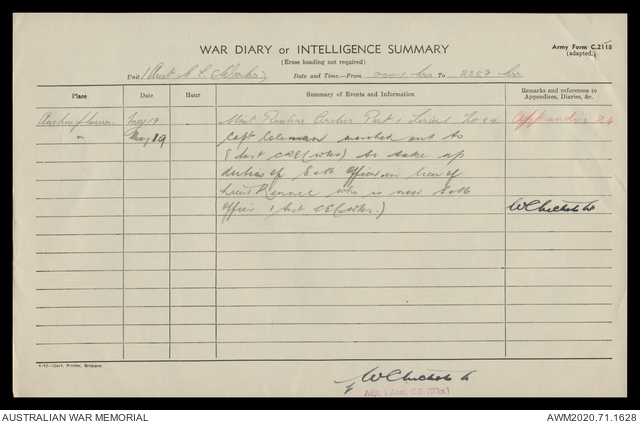 WAR DIARY or INTELLIGENCE SUMMARY
Army Form C.2118
(adapted.)
(Erase heading not required)
Unit 1 Aust C E (Works) Date and Time.—From 0001 hrs To 2359 hrs
Place Date Hour Summary of Events and Information Remarks and references to Appendices, Diaries, &c.
May 19 Routine Orders Part 1 Serial No 54 Appendix 24
" May 19 Capt Coleman marched out to
Aust CRE (Wks) to take up
duties of E & M Officer in lieu of
Lieut Rennie who is now E & M
Officer 1 Aust CE (Wks.)
A-42—Govt. Printer, Brisbane.
Adj. 1 Aust. C.E. (Wks)
AUSTRALIAN WAR MEMORIAL
AWM2020.71.1628